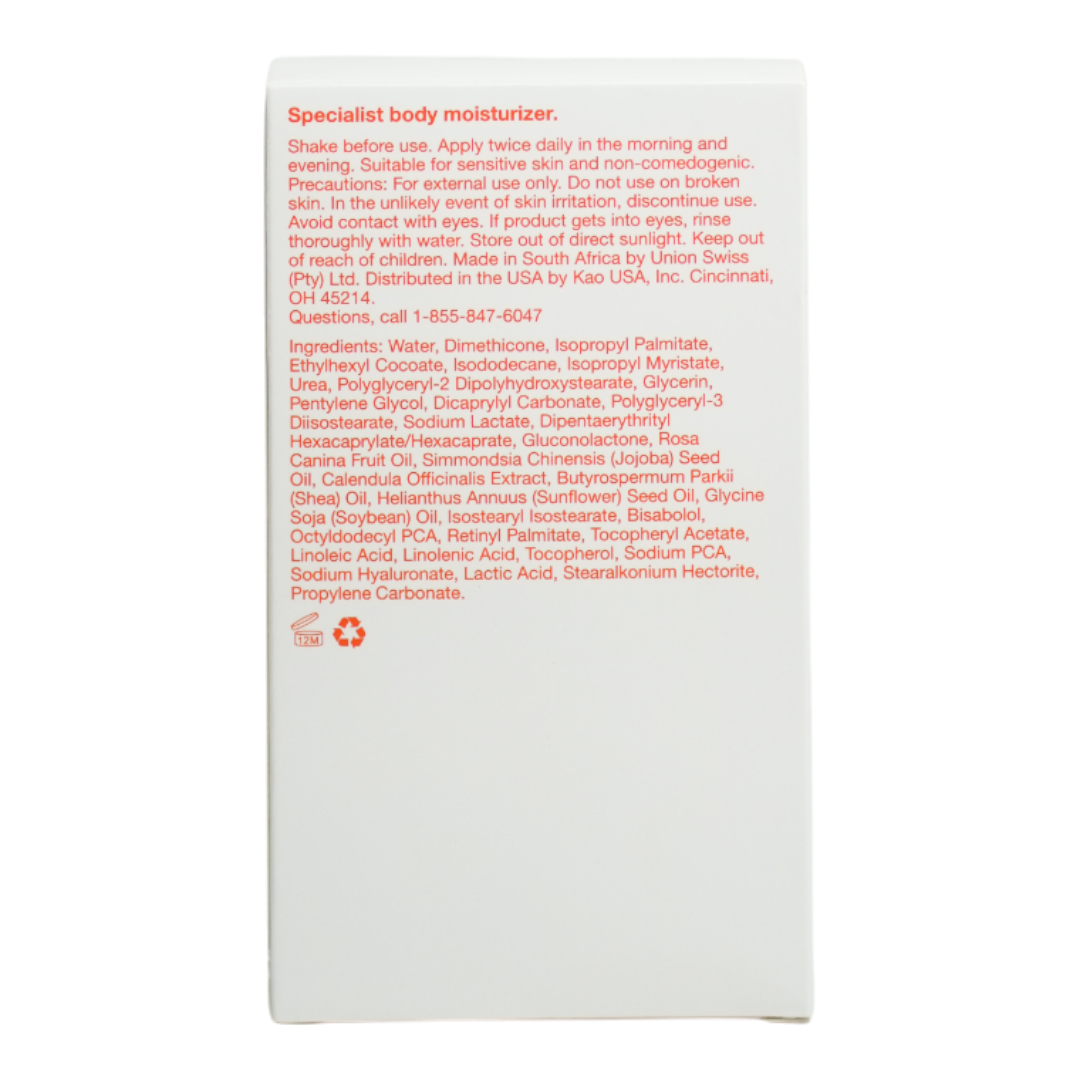 Specialist body moisturizer.
Shake before use. Apply twice daily in the morning and
evening. Suitable for sensitive skin and non-comedogenic.
Precautions: For external use only. Do not use on broken
skin. In the unlikely event of skin irritation, discontinue use.
Avoid contact with eyes. If product gets into eyes, rinse
thoroughly with water. Store out of direct sunlight. Keep out
of reach of children. Made in South Africa by Union Swiss
(Pty) Ltd. Distributed in the USA by Kao USA, Inc. Cincinnati,
OH 45214.
Questions, call 1-855-847-6047
Ingredients: Water, Dimethicone, Isopropyl Palmitate,
Ethylhexyl Cocoate, Isododecane, Isopropyl Myristate,
Urea, Polyglyceryl-2 Dipolyhydroxystearate, Glycerin,
Pentylene Glycol, Dicaprylyl Carbonate, Polyglyceryl-3
Diisostearate, Sodium Lactate, Dipentaerythrityl
Hexacaprylate/Hexacaprate, Gluconolactone, Rosa
Canina Fruit Oil, Simmondsia Chinensis (Jojoba) Seed
Oil, Calendula Officinalis Extract, Butyrospermum Parkii
(Shea) Oil, Helianthus Annuus (Sunflower) Seed Oil, Glycine
Soja (Soybean) Oil, Isostearyl Isostearate, Bisabolol,
Octyldodecyl PCA, Retinyl Palmitate, Tocopheryl Acetate,
Linoleic Acid, Linolenic Acid, Tocopherol, Sodium PCA,
Sodium Hyaluronate, Lactic Acid, Stearalkonium Hectorite,
Propylene Carbonate.
12M